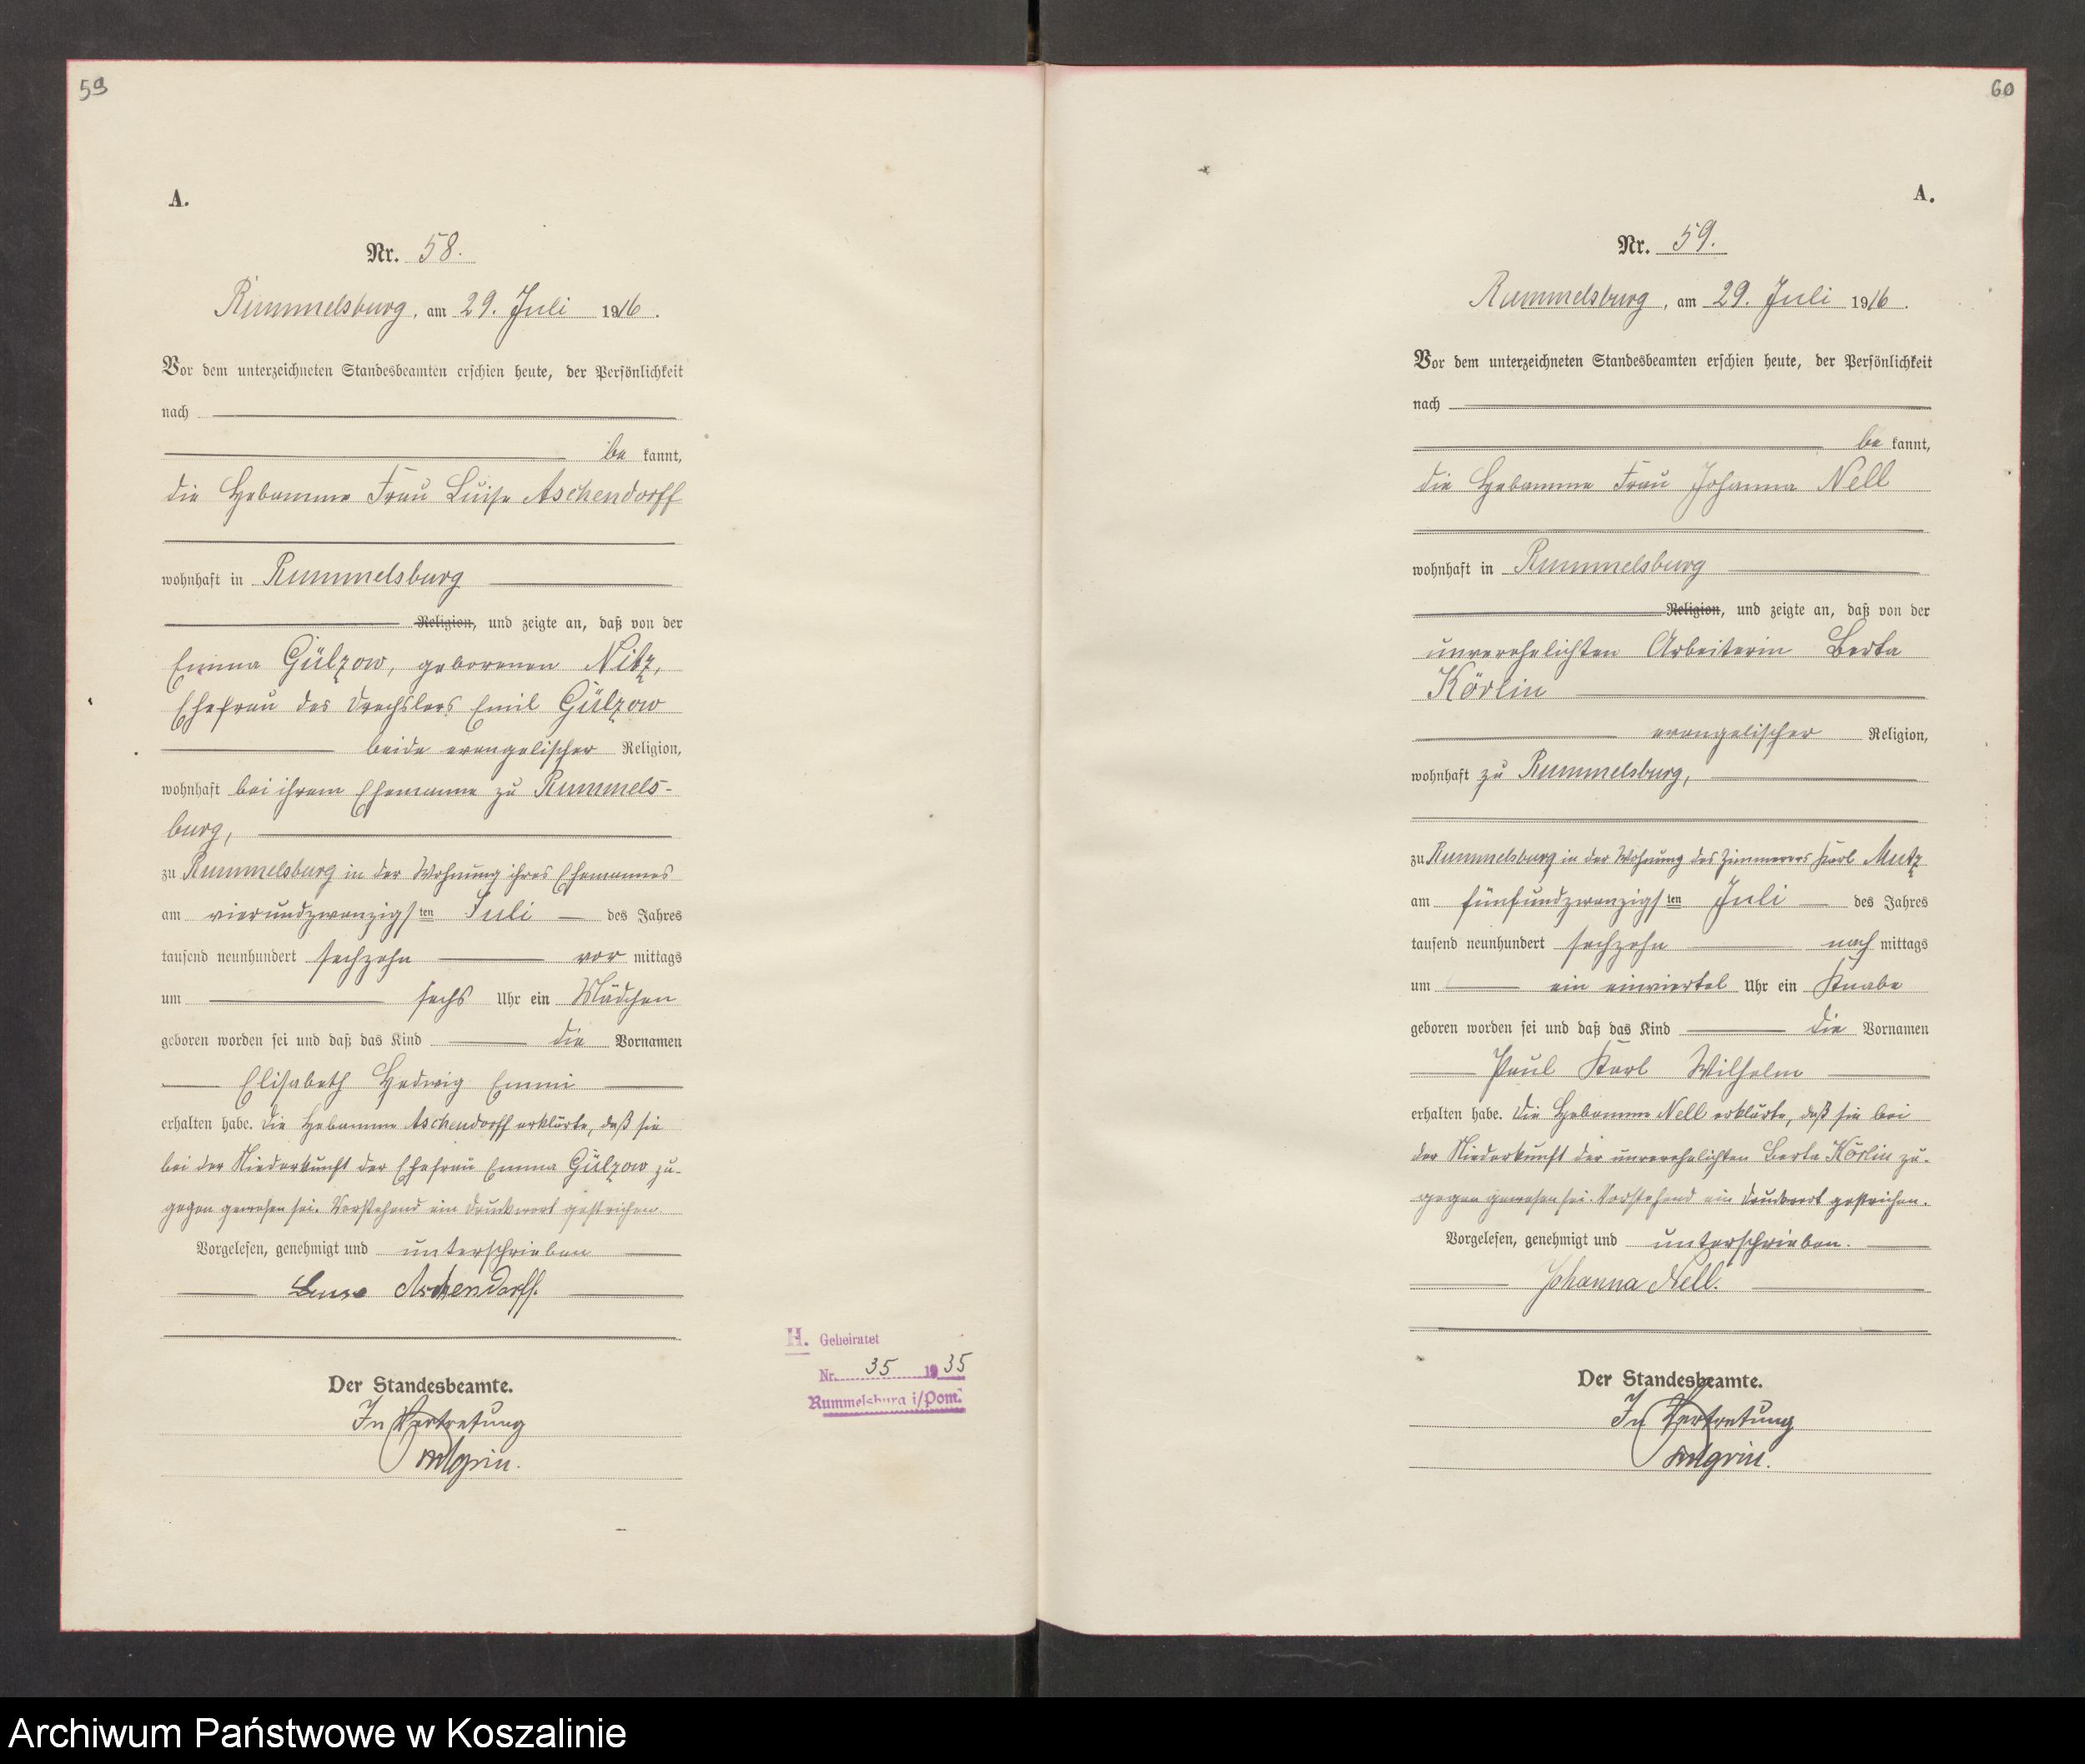 59
A.
Nr. 58.
Rummelsburg, am 29. Juli 1916.
Vor dem unterzeichneten Standesbeamten erschien heute, der Persönlichkeit
nach
be kannt,
die Hebamme Frau Luise Aschendorff
wohnhaft in Rummelsburg
Religion, und zeigte an, daß von der
Emma Gülzow, geborenen Nitz,
Ehefrau des Drechslers Emil Gülzow
beide evangelischer Religion,
wohnhaft bei ihrem Ehemanne zu Rummels-
burg,
zu Rummelsburg in der Wohnung ihres Ehemannes
am vierundzwanzigsten Juli des Jahres
tausend neunhundert sechzehn vor mittags
um sechs Uhr ein Mädchen
geboren worden sei und daß das Kind die Vornamen
Elisabeth Hedwig Emmi
erhalten habe. Die Hebamme Aschendorff erklärte, daß sie
bei der Niederkunft der Ehefrau Emma Gülzow zu-
gegen gewesen sei. Vorstehend ein Druckwort gestrichen.
Vorgelesen, genehmigt und unterschrieben
Luise Aschendorff.
Der Standesbeamte.
In Vertretung
H. Geheiratet
Nr. 35 1935
Rummelsburg i/Pom.
60
A.
Nr. 59.
Rummelsburg, am 29. Juli 1916.
Vor dem unterzeichneten Standesbeamten erschien heute, der Persönlichkeit
nach
be kannt,
die Hebamme Frau Johanna Nell
wohnhaft in Rummelsburg
Religion, und zeigte an, daß von der
unverehelichten Arbeiterin Berta
Körlin
evangelischer Religion,
wohnhaft zu Rummelsburg,
zu Rummelsburg in der Wohnung des Zimmerers Karl Mutz
am fünfundzwanzigsten Juli des Jahres
tausend neunhundert sechzehn nach mittags
um ein einviertel Uhr ein Knabe
geboren worden sei und daß das Kind die Vornamen
Paul Karl Wilhelm
erhalten habe. Die Hebamme Nell erklärte, daß sie bei
der Niederkunft der unverehelichten Berta Körlin zu-
gegen gewesen sei. Vorstehend ein Druckwort gestrichen.
Vorgelesen, genehmigt und unterschrieben.
Johanna Nell.
Der Standesbeamte.
In Vertretung
Archiwum Państwowe w Koszalinie